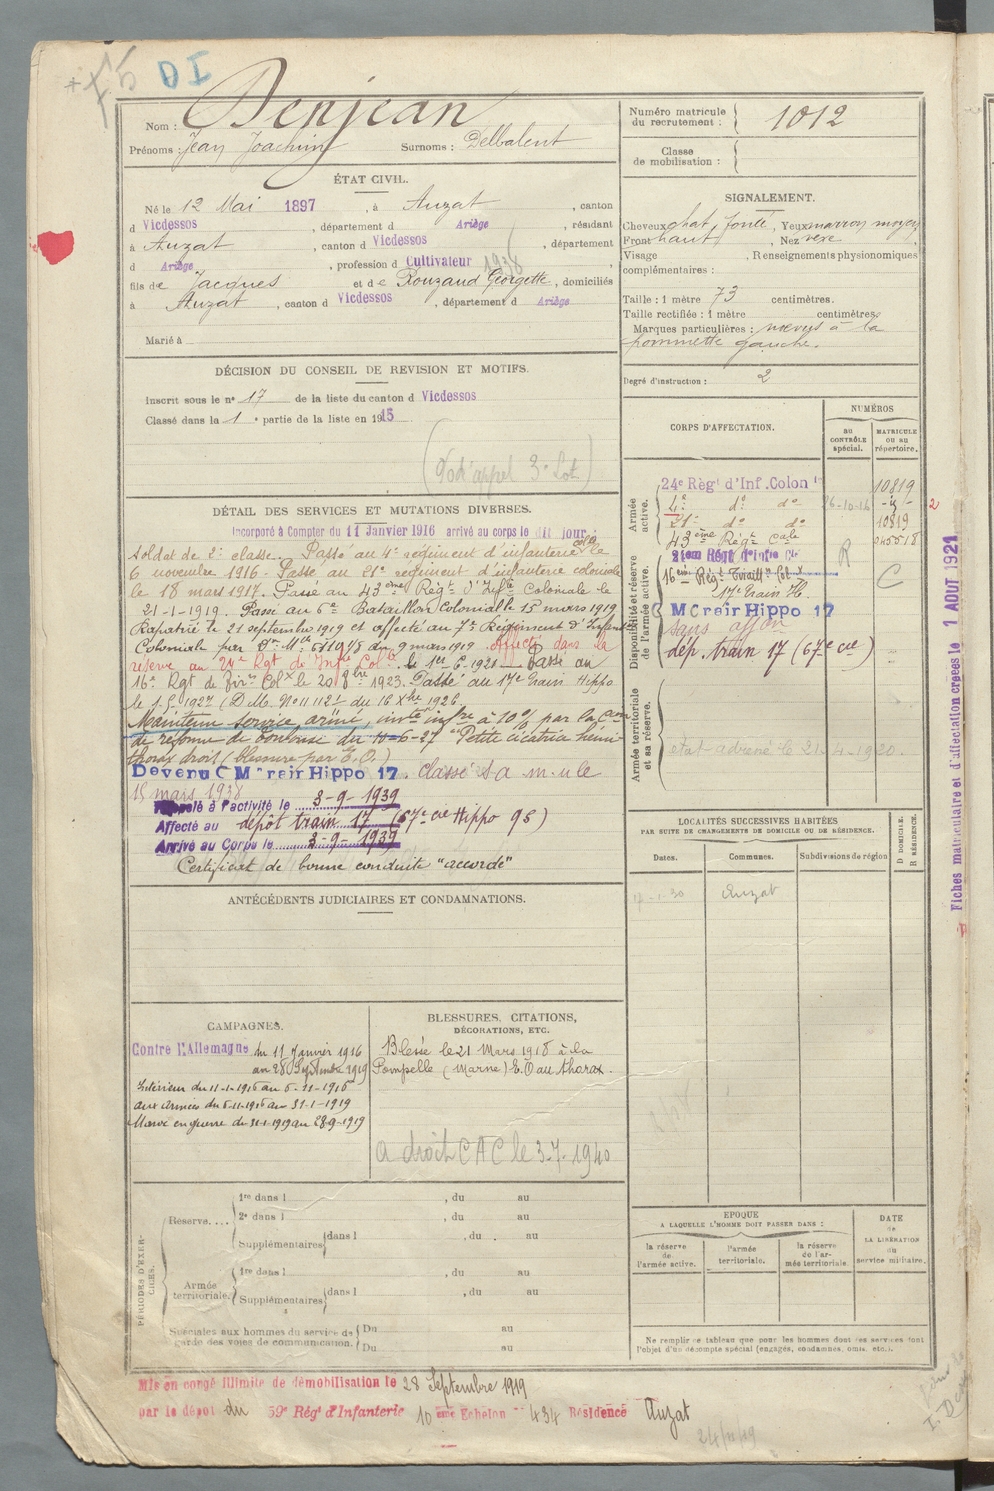 DI
Nom : Denjean
Prénoms : Jean Joachim Surnoms : Delbalent
Numéro matricule du recrutement : 1012
Classe de mobilisation :
ÉTAT CIVIL.
Né le 12 Mai 1897, à Auzat, canton
d Vicdessos, département d Ariège, résidant
à Auzat, canton d Vicdessos, département
d Ariège, profession d Cultivateur 1938
fils de Jacques et de Rouzaud Georgette, domiciliés
à Auzat, canton d Vicdessos, département d Ariège
Marié à
SIGNALEMENT.
Cheveux chat. foncé, Yeux marron moyen
Front haut, Nez vexe
Visage, Renseignements physionomiques
complémentaires :
Taille : 1 mètre 73 centimètres.
Taille rectifiée : 1 mètre centimètres.
Marques particulières : nœvus à la
pommette gauche.
Degré d'instruction : 2
DÉCISION DU CONSEIL DE REVISION ET MOTIFS.
Inscrit sous le n° 17 de la liste du canton d Vicdessos
Classé dans la 1e partie de la liste en 1915
(d'appel 3e Lot)
DÉTAIL DES SERVICES ET MUTATIONS DIVERSES.
Incorporé à Compter du 11 Janvier 1916 arrivé au corps le dit jour,
Soldat de 2e classe. Passé au 4e régiment d'infanterie colole le
6 novembre 1916. Passé au 21e régiment d'infanterie coloniale
le 18 mars 1917. Passé au 43ème Régt d'Infie Coloniale le
21-1-1919. Passé au 6e Bataillon Colonial le 15 mars 1919
Rapatrié le 21 septembre 1919 et affecté au 7e Régiment d'Infanterie
Coloniale par du 9 mars 1919. Affecté dans la
réserve au 24e Rgt de Infie Colle le 1er-6-1920. Passé au
16e Rgt de Tirrs Colx le 20 8bre 1923. Passé au 17e Train Hippo
le 1-5-1927 (D.M. No 11112 du 16 Xbre 1926.
Maintenu service armé, invté infre à 10% par la Com
de réforme de Toulouse du 10-6-27 "Petite cicatrice hémi-
thorax droit (blessure par E.O.)
Devenu C Mobr air Hippo 17. Classé S a m. u le
15 mars 1938
Rappelé à l'activité le 3-9-1939
Affecté au dépôt train 17 (67e Cie Hippo 95)
Arrivé au Corps le 3-9-1939
Certificat de bonne conduite "accordé"
CORPS D'AFFECTATION.
NUMÉROS
au CONTRÔLE spécial.
MATRICULE OU au répertoire.
Armée active.
24e Régt d'Inf. Colon le 10819
4e do do 26-10-16
21e do do 10819
43ème Régt Cale 045518
Disponibilité et réserve de l'armée active.
21ème Régt d'Infie Cle R
16ème Régt Tiraillrs Colx C
17e Train H.
M Cre air Hippo 17
sans affon
dép. train 17 (67e cie)
Armée territoriale et sa réserve.
état adressé le 21-4-1920.
2
Fiches matriculaire et d'affectation créées le 1 AOUT 1921
LOCALITÉS SUCCESSIVES HABITÉES
PAR SUITE DE CHANGEMENTS DE DOMICILE OU DE RÉSIDENCE.
Dates. Communes. Subdivisions de région D DOMICILE. R RÉSIDENCE.
17-1-30 Auzat
ANTÉCÉDENTS JUDICIAIRES ET CONDAMNATIONS.
CAMPAGNES.
Contre l'Allemagne du 11 Janvier 1916
au 28 Septembre 1919
Intérieur du 11-1-1916 au 5-11-1916
aux armées du 6-11-1916 au 31-1-1919
Maroc en guerre du 31-1-1919 au 28-9-1919
BLESSURES, CITATIONS,
DÉCORATIONS, ETC.
Blessé le 21 Mars 1918 à la
Pompelle (Marne) E.O au thorax.
a droit C A C le 3-7-1940
PÉRIODES D'EXERCICES.
Réserve....
1re dans l , du au
2e dans l , du au
Supplémentaires dans l , du au
Armée territoriale.
1re dans l , du au
Supplémentaires dans l , du au
Spéciales aux hommes du service de garde des voies de communication.
Du au
Du au
EPOQUE
A LAQUELLE L'HOMME DOIT PASSER DANS :
la réserve de l'armée active.
l'armée territoriale.
la réserve de l'armée territoriale.
DATE de LA LIBÉRATION du service militaire.
Ne remplir ce tableau que pour les hommes dont les services font
l'objet d'un décompte spécial (engagés, condamnés, omis, etc.).
Mis en congé illimité de démobilisation le 28 Septembre 1919
par le dépôt du 59e Régt d'Infanterie 10ème Echelon 434 Résidence Auzat